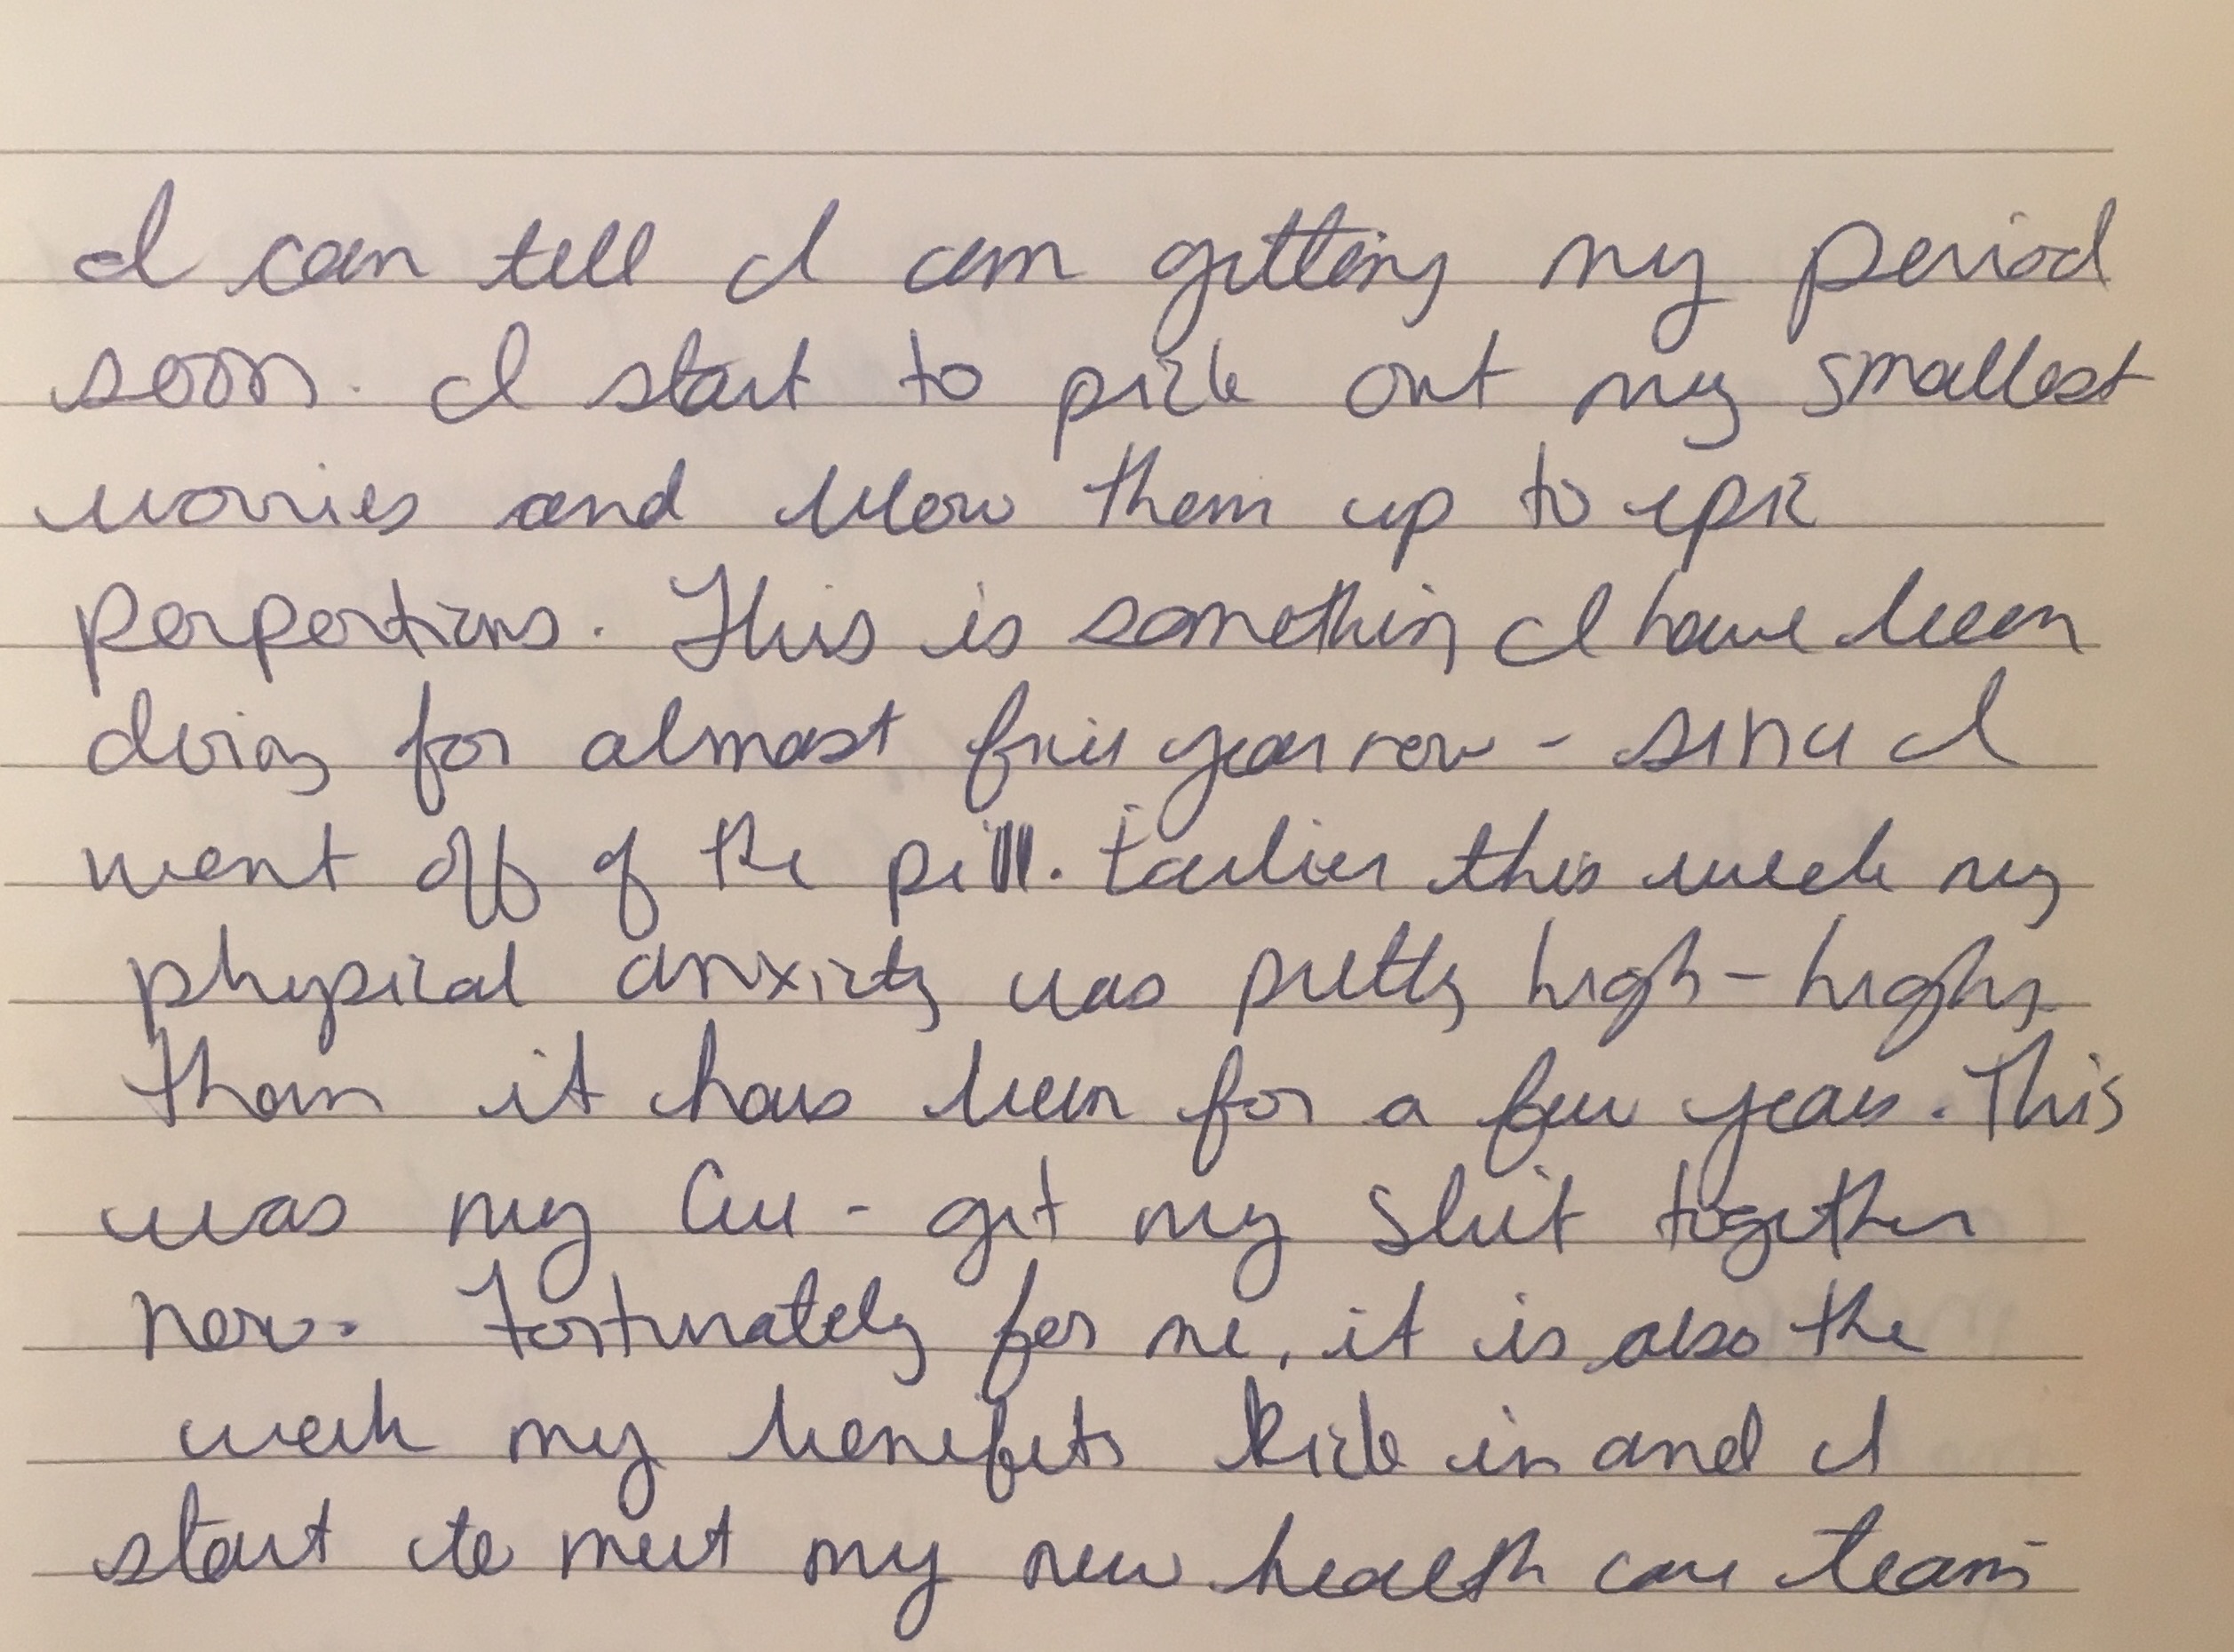 I can tell I am getting my period
soon. I start to pick out my smallest
worries and blow them up to epic
porportions. This is something I have been
doing for almost five year now - since I
went off of the pill. Earlier this week my
physical anxiety was pretty high - higher
than it has been for a few years. This
was my cue - get my shit together
now. Fortunately for me, it is also the
week my benefits kick in and I
start to meet my new health care team